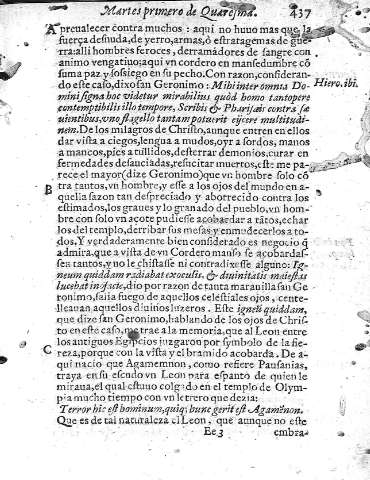 Martes primero de Quaresma. 437
A preualecer contra muchos: aqui no huuo mas que la
fuerça desnuda, de yerro, armas, ò estratagemas de gue-
rra: alli hombres feroces, derramadores de sangre con
animo vengatiuo; aqui vn cordero en mansedumbre cõ
suma paz y sossiego en su pecho. Con razon, consideran-
do este caso, dixo san Geronimo: Mihi inter omnia Do-
Hiero. ibi.
mini signa hoc videtur mirabilius quòd homo tantopere
contemptibilis illo tempore, Scribis & Pharisæis contra sæ
uientibus, vno flagello tantam potuerit eijcere multitudi-
nem. De los milagros de Christo, aunque entren en ellos
dar vista a ciegos, lengua a mudos, oyr a sordos, manos
a mancos, pies a tullidos, desterrar demonios, curar en
fermedades desauciadas, resucitar muertos, este me pa-
rece el mayor (dize Geronimo) que vn hombre solo cõ
B tra tantos, vn hombre, y esse a los ojos del mundo en a-
quella sazon tan despreciado y aborrecido contra los
estimados, los graues y lo granado del pueblo, vn hom-
bre con solo vn açote pudiesse acobardar a tãtos, echar
los del templo, derribar sus mesas y enmudecerlos a to-
dos. Y verdaderamente bien considerado es negocio q̃
admira, que a vista de vn Cordero manso se acobardas-
sen tantos, y no le chistasse ni contradixesse alguno: Ig-
neum quiddam radiabat ex oculis, & diuinitatis maiestas
lucebat in facie, dio por razon de tanta marauilla san Ge
ronimo, salia fuego de aquellos celestiales ojos, cente-
lleauan aquellos diuinos luzeros. Este igneũ quiddam,
que dize san Geronimo, hablando de los ojos de Chris-
to en este caso, me trae a la memoria, que al Leon entre
los antiguos Egipcios juzgaron por symbolo de la fie-
C reza, porque con la vista y el bramido acobarda. De a-
qui nacio que Agamemnon, como refiere Pausanias,
traya en su escudo vn Leon para espanto de quien le
miraua, el qual estuuo colgado en el templo de Olym-
pia mucho tiempo con vn letrero que dezia:
Terror hic est hominum, quiq; hunc gerit est Agamẽnon.
Que es de tal naturaleza el Leon, que aunque no este
Ee 3 embra-